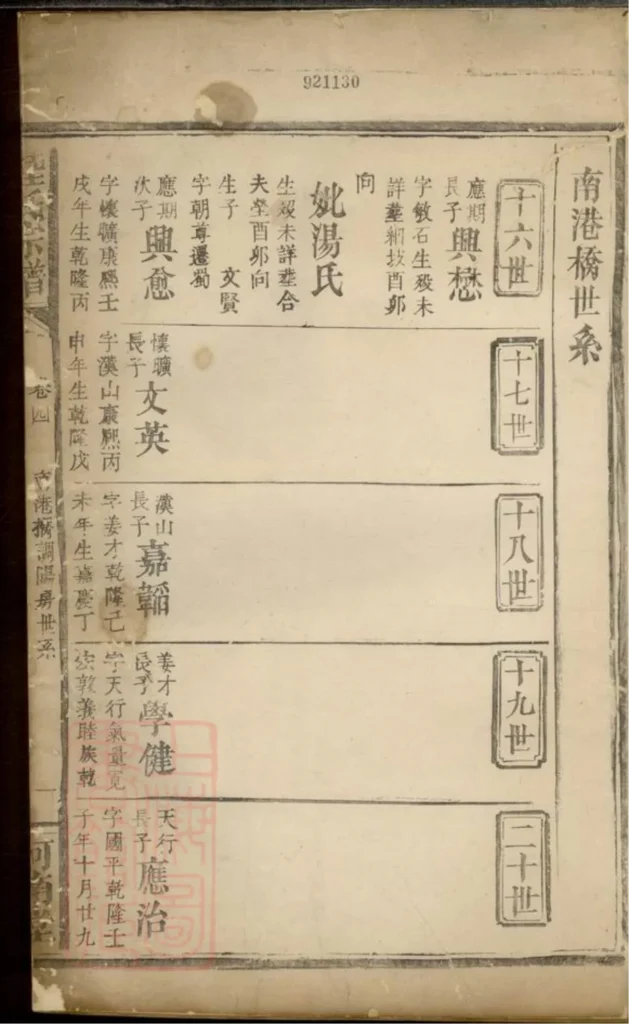 921130
南港橋世系
十六世
應期
長子
興懋
字敏石生歿未
詳塟柵坟酉卯
向
妣湯氏
生歿未詳塟合
夫塋酉卯向
生子 文賢
字朝尊遷蜀
應期
次子
興愈
字懷曠康熙壬
戌年生乾隆丙
十七世
懷曠
長子
文英
字漢山康熙丙
申年生乾隆戊
十八世
漢山
長子
嘉韜
字姜才乾隆己
未年生嘉慶丁
十九世
姜才
長子
學健
字天行氣量寬
宏敦義睦族乾
二十世
天行
長子
應治
字國平乾隆壬
子年十月廿九
宗譜
卷四
南港橋調陽房世系
一